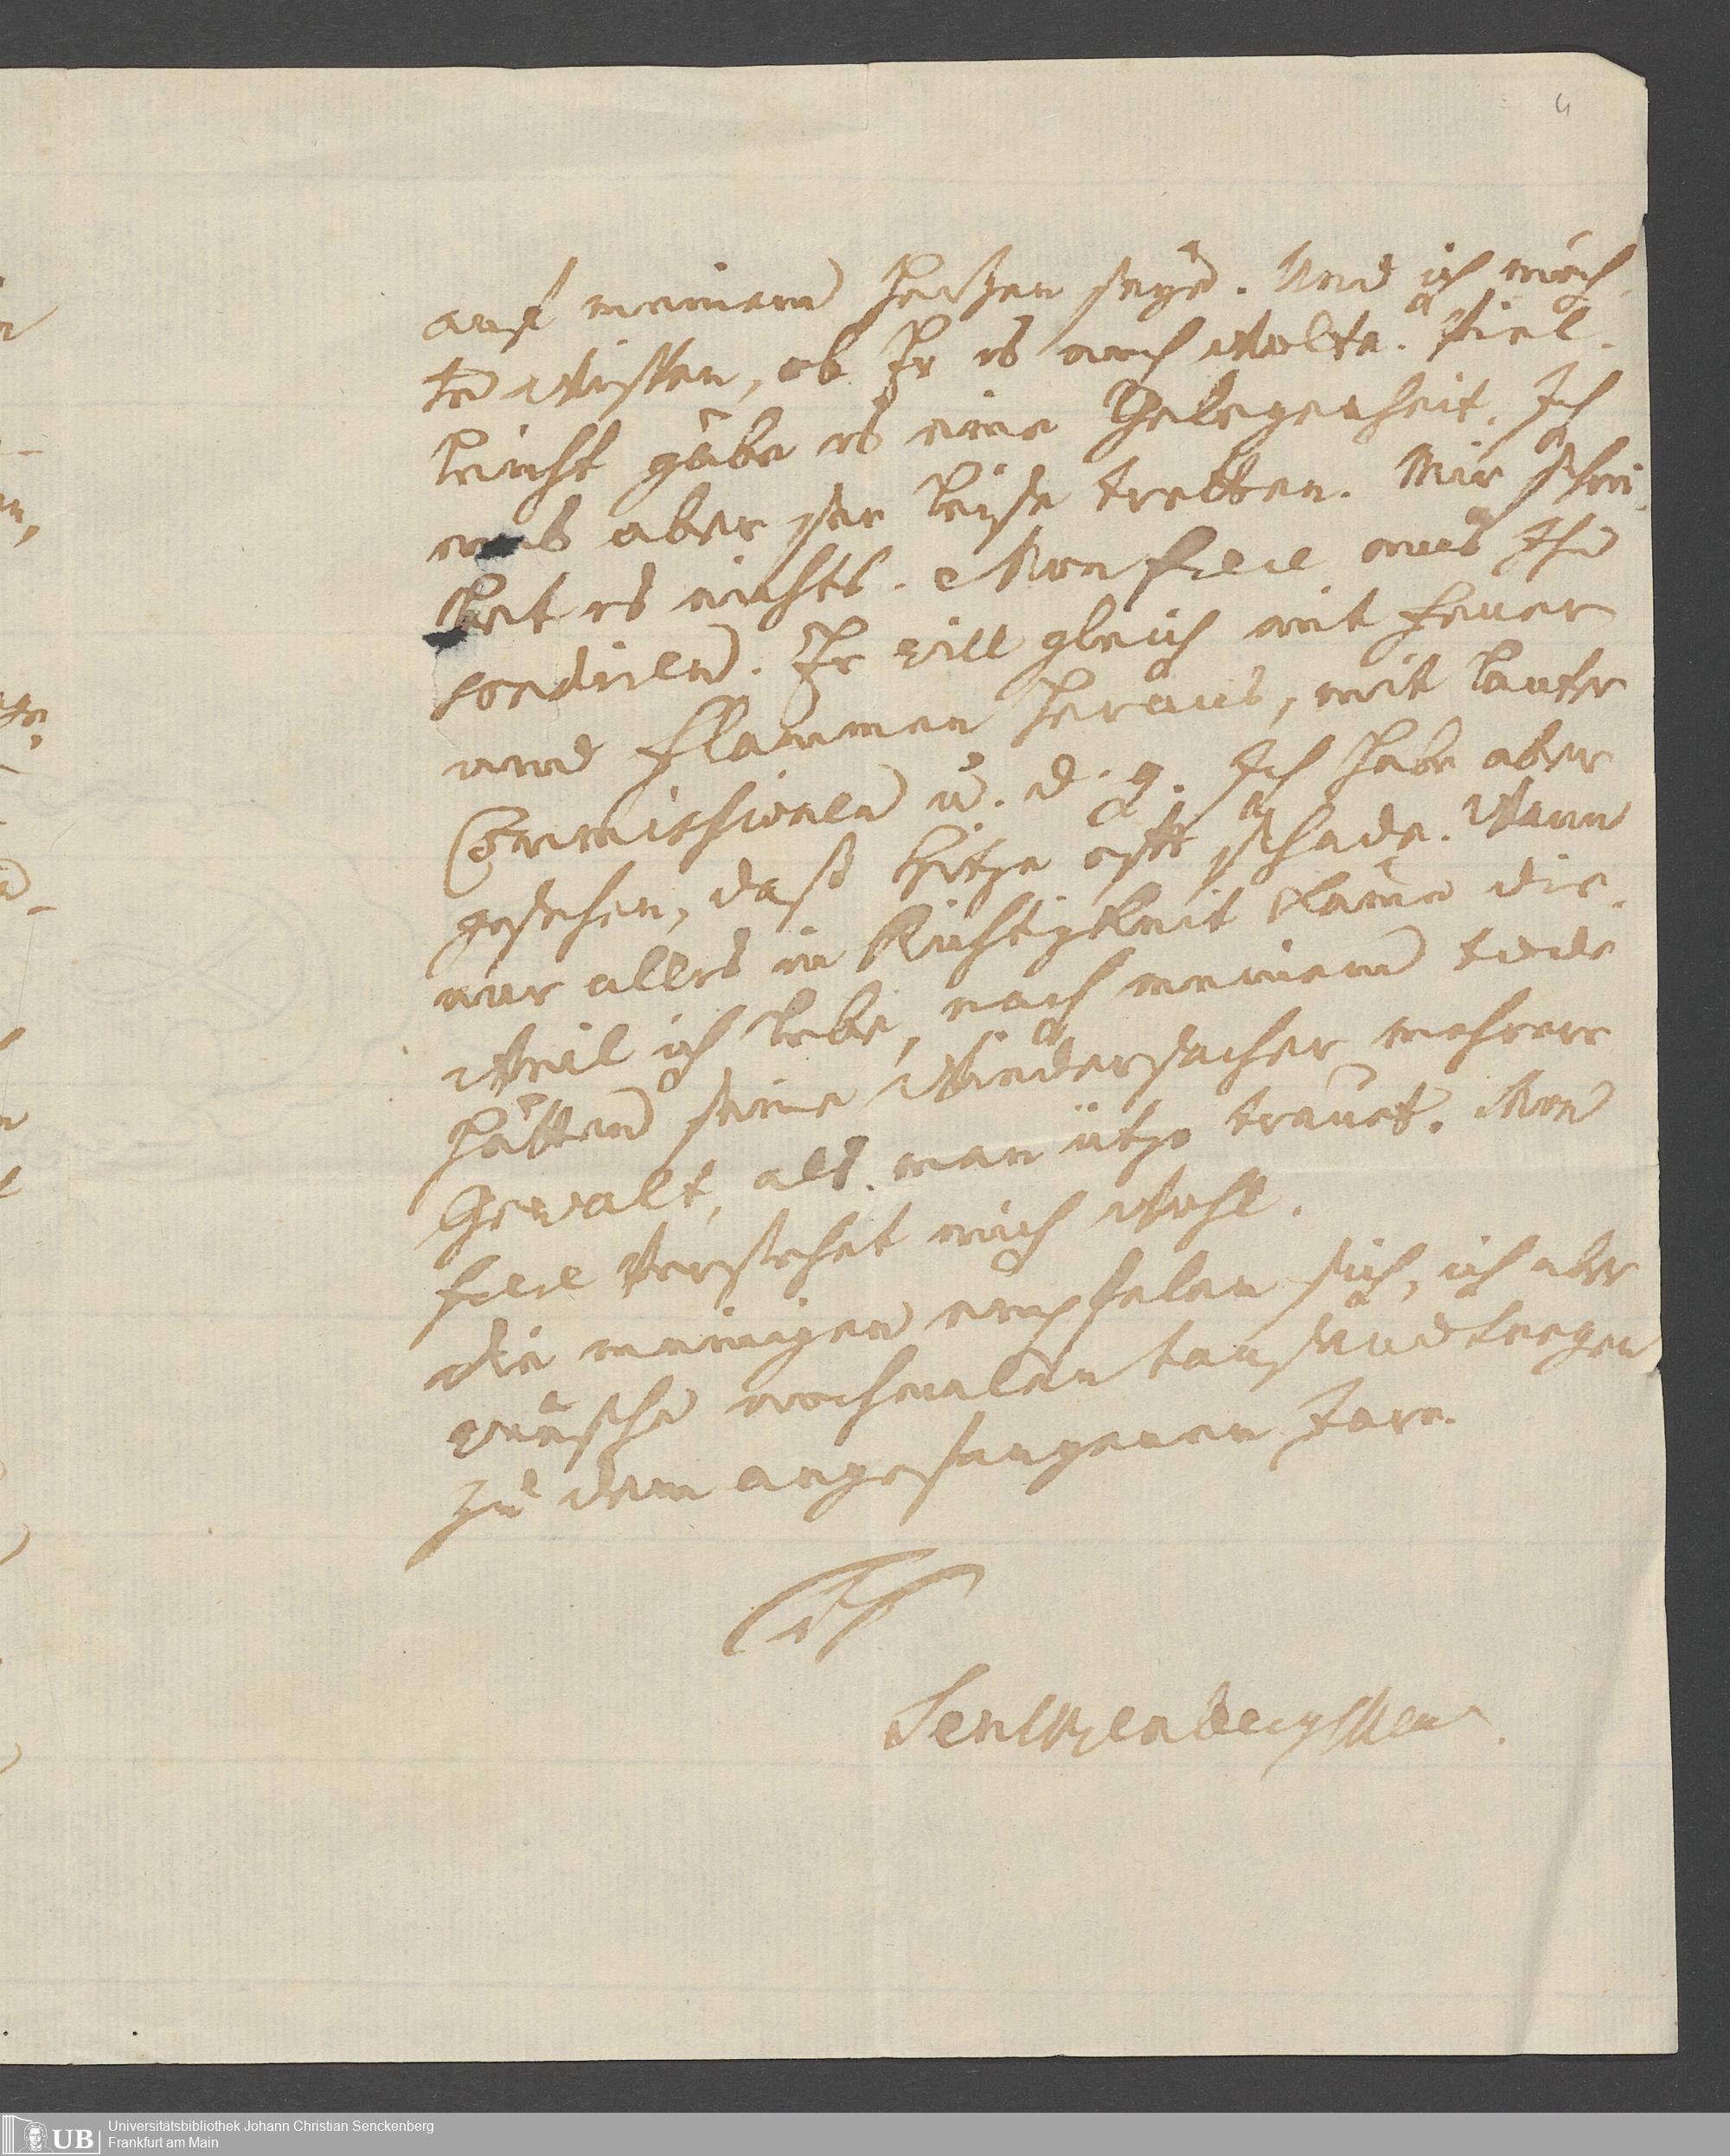 4
auf meinem Hertzen seye. Und ich möch-
te wissen, ob Er es auch wolte. Viel-
leicht gäbe es eine Gelegenheit. Ich
mus aber ser leise tretten. Mir schei-
bet es nichts. Mon frere mus Ihn
sondiren. Er will gleich mit Feuer
und Flammen heraus, mit lauter
Commissionen u. d. g. Ich habe aber
gesehen, daß Hitze offt schade. Wann
nur alles in Richtigkeit käme die-
weil ich lebe, nach meinem tode
hätten seine Widersacher mehrere
Gewalt, als man itzo trauet. Mon
frere verstehet mich wohl.
Die meinigen empfelen sich, ich aber
wünsche nochmalen tausend Seegen
zu dem angefangenen Jare.
Senckenberg
UB
Universitätsbibliothek Johann Christian Senckenberg
Frankfurt am Main